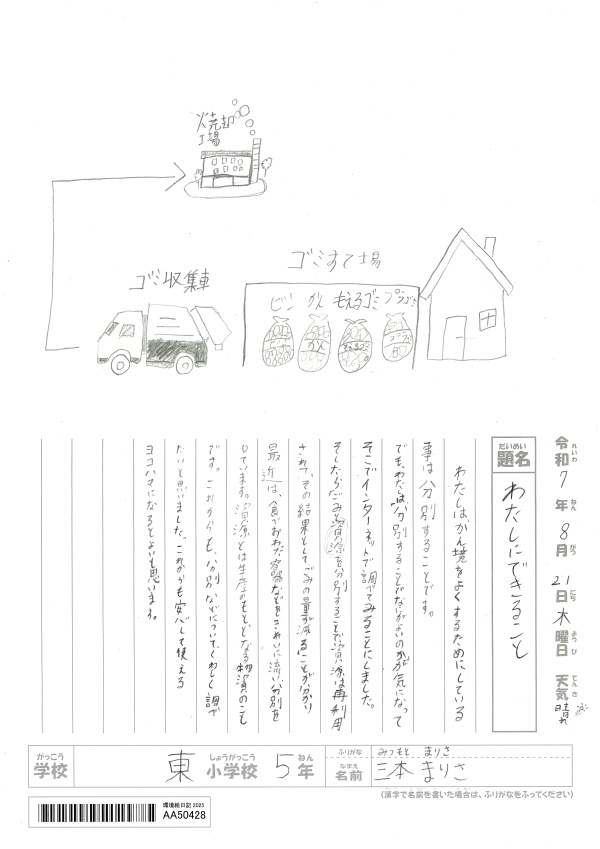 焼却
工場
ゴミすて場
ゴミ収集車
ビン かん もえるゴミ プラゴミ
かん
令和7年8月21日木曜日 天気 晴れ
れいわ ねん がつ にち ようび てんき
だいめい
題名
わたしにできること
わたしはかん境をよくするためにしている
事は分別することです。
でも、わたしは分別することでなにがよいのかが気になって
そこでインターネットで調べてみることにしました。
そしたらごみと資源を分別することで資源は再利用
されて、その結果としてごみの量が減ることが分かり
最近は、食べおわた容器などをきれいに流い分別を
しています。資源とは生産のもととなる物資のこと
です。これからも、分別などについてくわしく調べ
たいと思いました。これからも安心して使える
ヨコハマになるとよいと思います。
がっこう
学校
東 小学校 5年
しょうがっこう ねん
ふりがな みつもと まりさ
なまえ
名前 三本 まりさ
(漢字で名前を書いた場合は、ふりがなをふってください)
環境絵日記 2025
AA50428